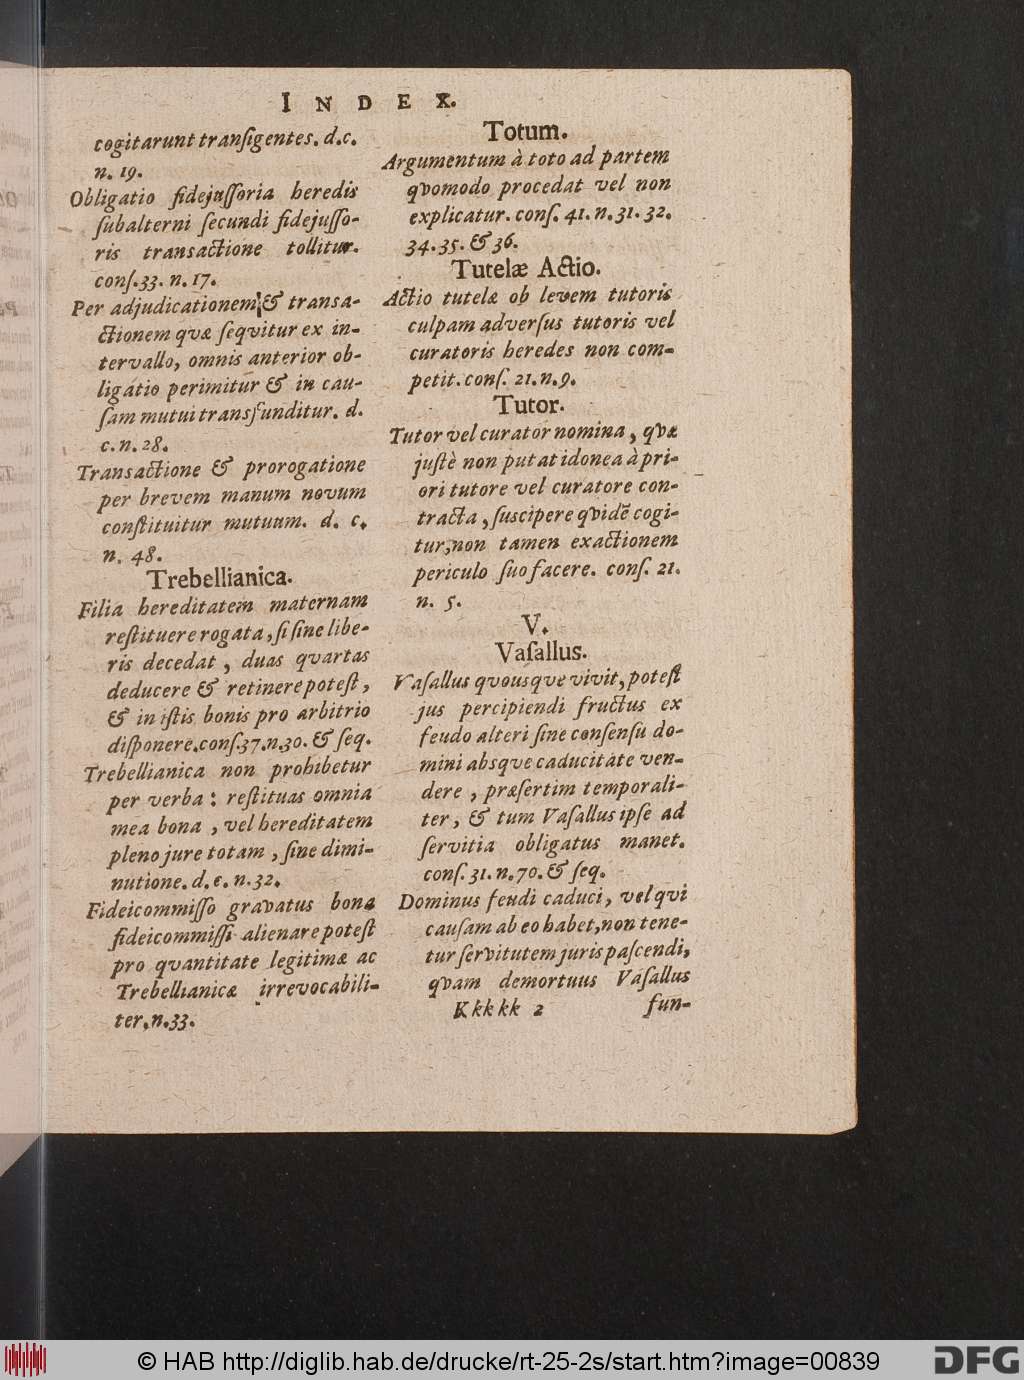 INDEX.
cogitarunt tranſigentes. d. c.
n. 19.
Obligatio fidejuſſoria heredis
ſubalterni ſecundi fidejuſſo-
ris transactione tollitur.
conſ. 33. n. 17.
Per adjudicationem & transa-
ctionem qvæ ſeqvitur ex in-
tervallo, omnis anterior ob-
ligatio perimitur & in cau-
ſam mutui transfunditur. d.
c. n. 28.
Transactione & prorogatione
per brevem manum novum
conſtituitur mutuum. d. c.
n. 48.
Trebellianica.
Filia hereditatem maternam
reſtituere rogata, ſi ſine libe-
ris decedat, duas qvartas
deducere & retinere poteſt,
& in iſtis bonis pro arbitrio
diſponere. conſ. 37. n. 30. & ſeq.
Trebellianica non prohibetur
per verba: reſtituas omnia
mea bona, vel hereditatem
pleno jure totam, ſine dimi-
nutione. d. c. n. 32.
Fideicommiſſo gravatus bona
fideicommiſſi alienare poteſt
pro qvantitate legitimæ ac
Trebellianicæ irrevocabili-
ter. n. 33.
Totum.
Argumentum à toto ad partem
qvomodo procedat vel non
explicatur. conſ. 41. n. 31. 32.
34. 35. & 36.
Tutelæ Actio.
Actio tutelæ ob levem tutoris
culpam adverſus tutoris vel
curatoris heredes non com-
petit. conſ. 21. n. 9.
Tutor.
Tutor vel curator nomina, qvæ
juſtè non putat idonea à pri-
ori tutore vel curatore con-
tracta, ſuscipere qvidē cogi-
tur, non tamen exactionem
periculo ſuo facere. conſ. 21.
n. 5.
V.
Vaſallus.
Vaſallus qvousqve vivit, poteſt
jus percipiendi fructus ex
feudo alteri ſine conſenſu do-
mini absqve caducitate ven-
dere, præſertim temporali-
ter, & tum Vaſallus ipſe ad
ſervitia obligatus manet.
conſ. 31. n. 70. & ſeq.
Dominus feudi caduci, vel qvi
cauſam ab eo habet, non tene-
tur ſervitutem juris paſcendi,
qvam demortuus Vaſallus
Kkkkk 2 fun-
© HAB http://diglib.hab.de/drucke/rt-25-2s/start.htm?image=00839
DFG